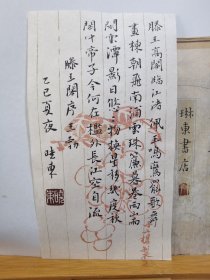 滕王高閣臨江渚佩玉鳴鸞罷歌舞
畫棟朝飛南浦雲珠簾暮卷西山雨
閒雲潭影日悠悠物換星移幾度秋
閣中帝子今何在檻外長江空自流
滕王閣序王勃
乙巳夏夜 曉東
琳東書店